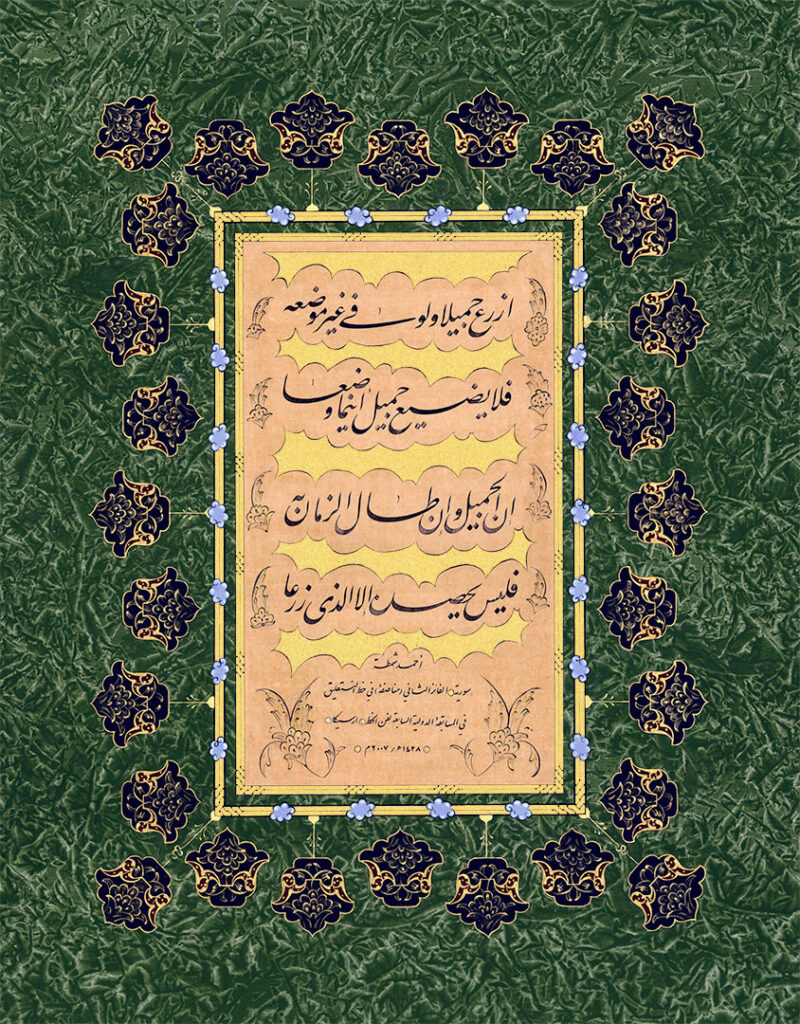 ازرع جميلا ولو في غير موضعه
فلا يضيع جميل أينما وضعا
ان الجميل وان طال الزمان به
فليس يحصده الا الذي زرعا
أحمد شمطة
سورية الفائز الثاني (مناصفة) في خط النستعليق
في المسابقة الدولية السابعة لفن الخط ارسيكا
١٤٢٨ه / ٢٠٠٧م